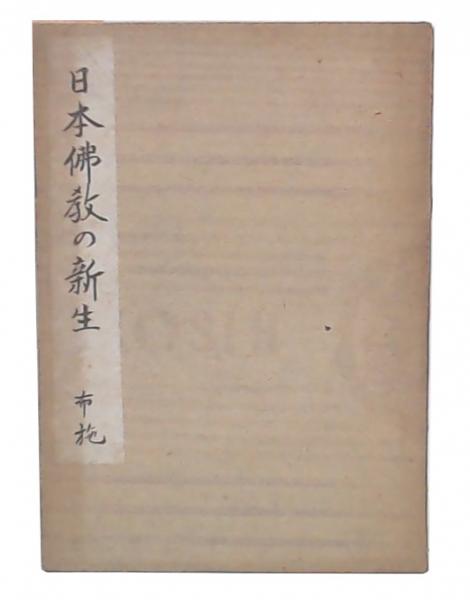 日本佛教の新生
布施